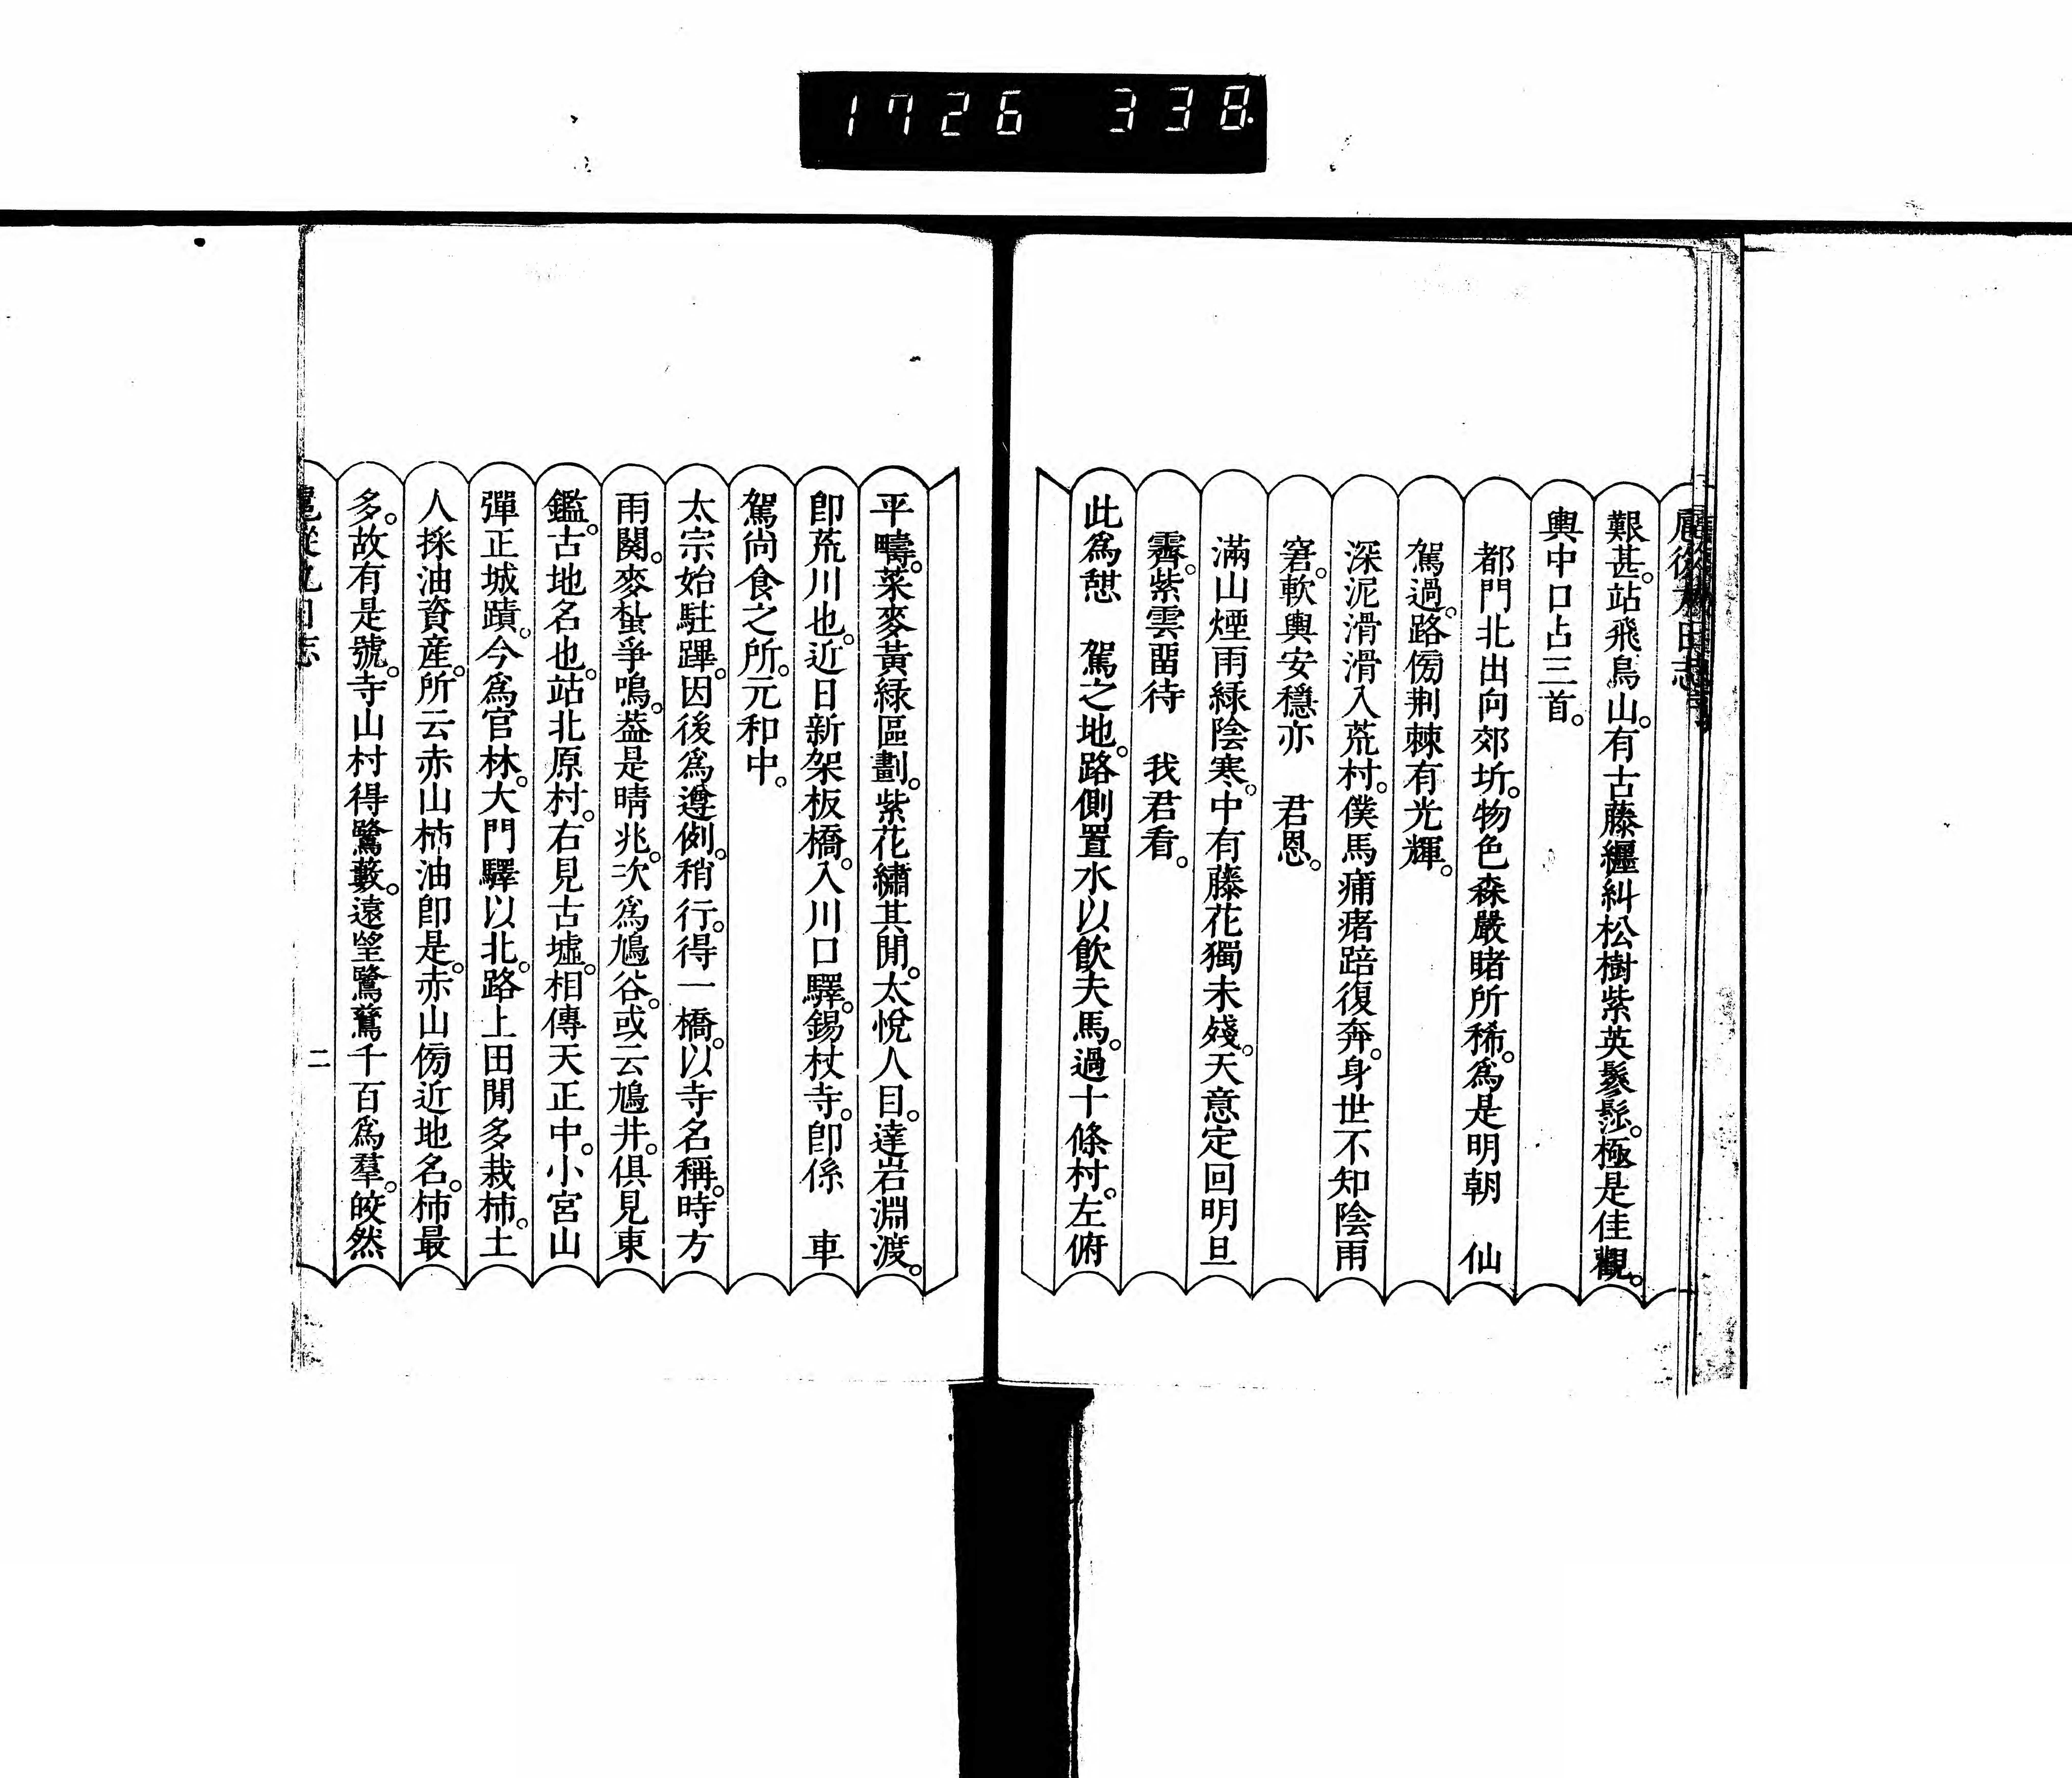 1726 338
艱甚。站飛鳥山。有古藤纒糾松樹紫英鬖髿。極是佳觀。
輿中口占三首。
都門北出向郊圻。物色森嚴睹所稀。爲是明朝　仙
駕過。路傍荆棘有光輝。
深泥滑滑入荒村。僕馬痡瘏踣復奔。身世不知陰雨
窘。軟輿安穩亦　君恩。
滿山煙雨綠陰寒。中有藤花獨未殘。天意定回明旦
霽。紫雲畱待　我君看。
此爲憇　駕之地。路側置水以飮夫馬。過十條村。左俯
平疇。菜麥黃綠區劃。紫花繡其閒。太悅人目。達岩淵渡。
卽荒川也。近日新架板橋。入川口驛。錫杖寺。卽係　車
駕尙食之所。元和中。
太宗始駐蹕。因後爲遵例。稍行。得一橋。以寺名稱。時方
雨闋。麥蚻爭鳴。葢是晴兆。次爲鳩谷。或云鳩井。俱見東
鑑。古地名也。站北原村。右見古墟。相傳天正中。小宮山
彈正城蹟。今爲官林。大門驛以北。路上田閒多栽柿。土
人採油資産。所云赤山柿油卽是。赤山傍近地名。柿最
多。故有是號。寺山村得鷺藪。遠望鷺鶿千百爲羣。皎然
二